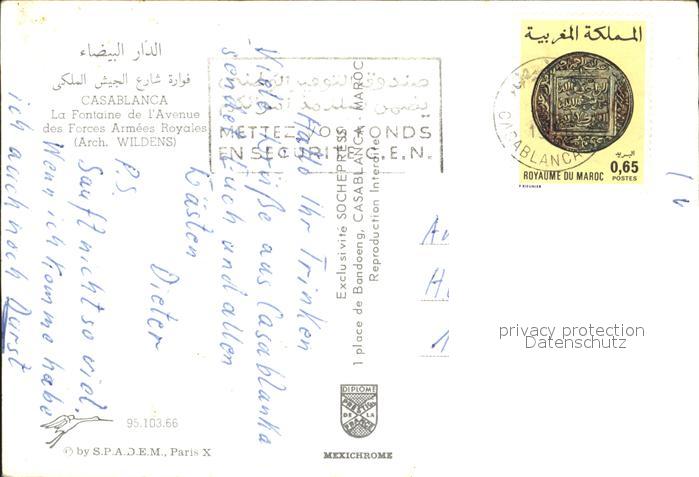 الدار البيضاء
فوارة شارع الجيش الملكي
CASABLANCA
La Fontaine de l'Avenue
des Forces Armées Royales
(Arch. WILDENS)
صندوق التوفير الوطني
METTEZ VOS FONDS
EN SECURITE C.E.N.
المملكة المغربية
البريد
0,65
ROYAUME DU MAROC POSTES
CASABLANCA
Hallo Ihr Trinken
Viele Grüße aus Casablanka
sendet Euch und allen
Gästen
Dieter
P.S.
Sauft nicht so viel.
Wenn ich komme habe
ich auch noch Durst
Exclusivité SOCHEPRESS
1 place de Bandoeng, CASABLANCA - MAROC
Reproduction Interdite
privacy protection
Datenschutz
DIPLOME
PRESTIGE
DE LA
FRANCE
MEXICHROME
95.103.66
© by S.P.A.D.E.M., Paris X